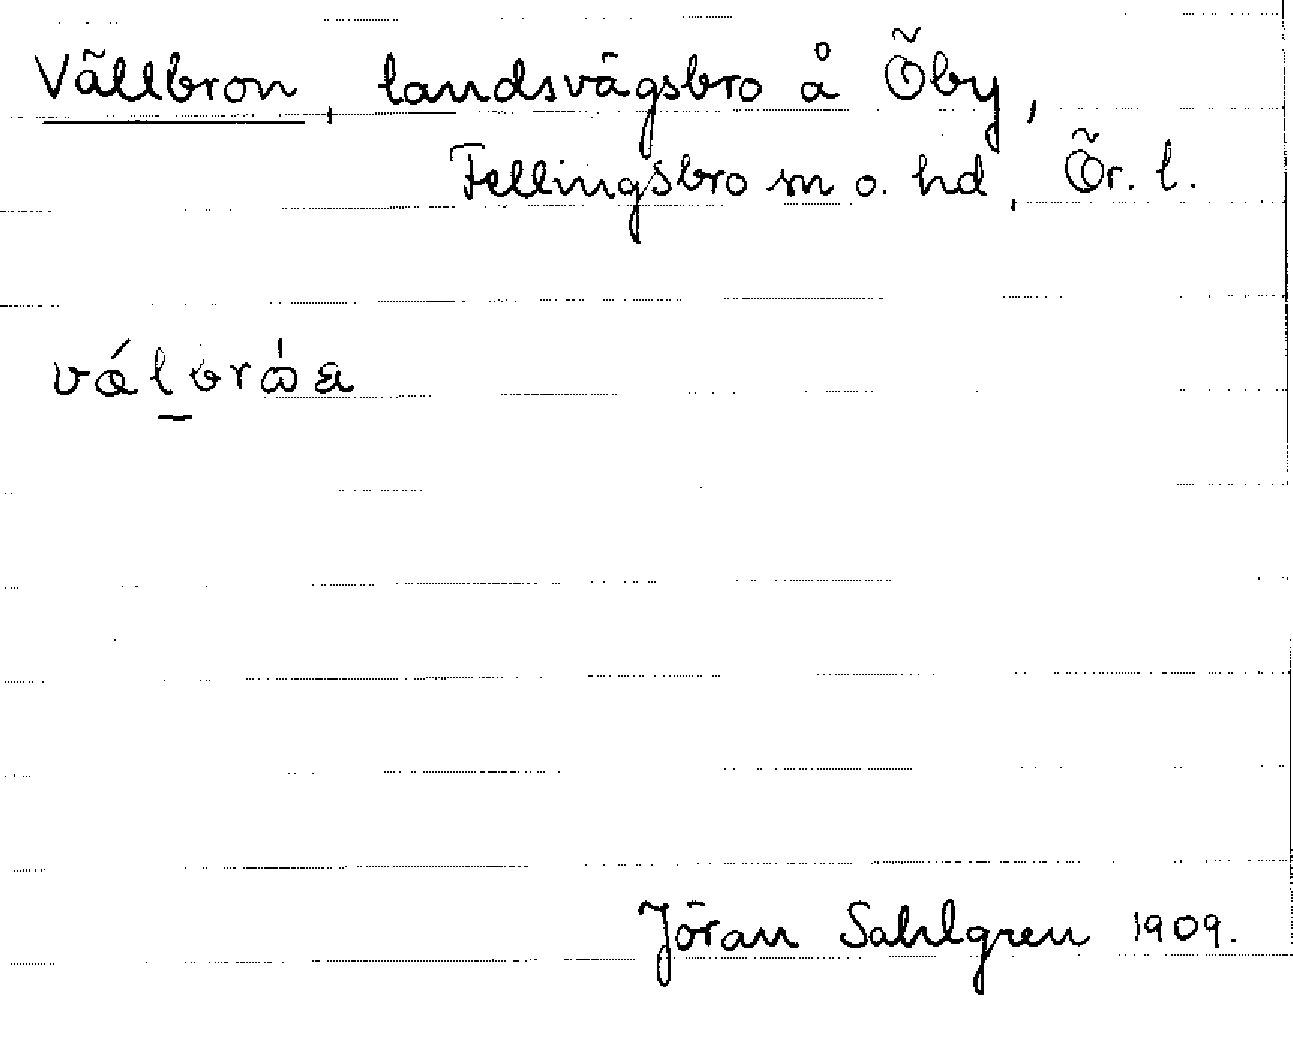 Vällbron, landsvägsbro å Öby,
Fellingsbro sn o. hd, Ör. l.
Jöran Sahlgren 1909.